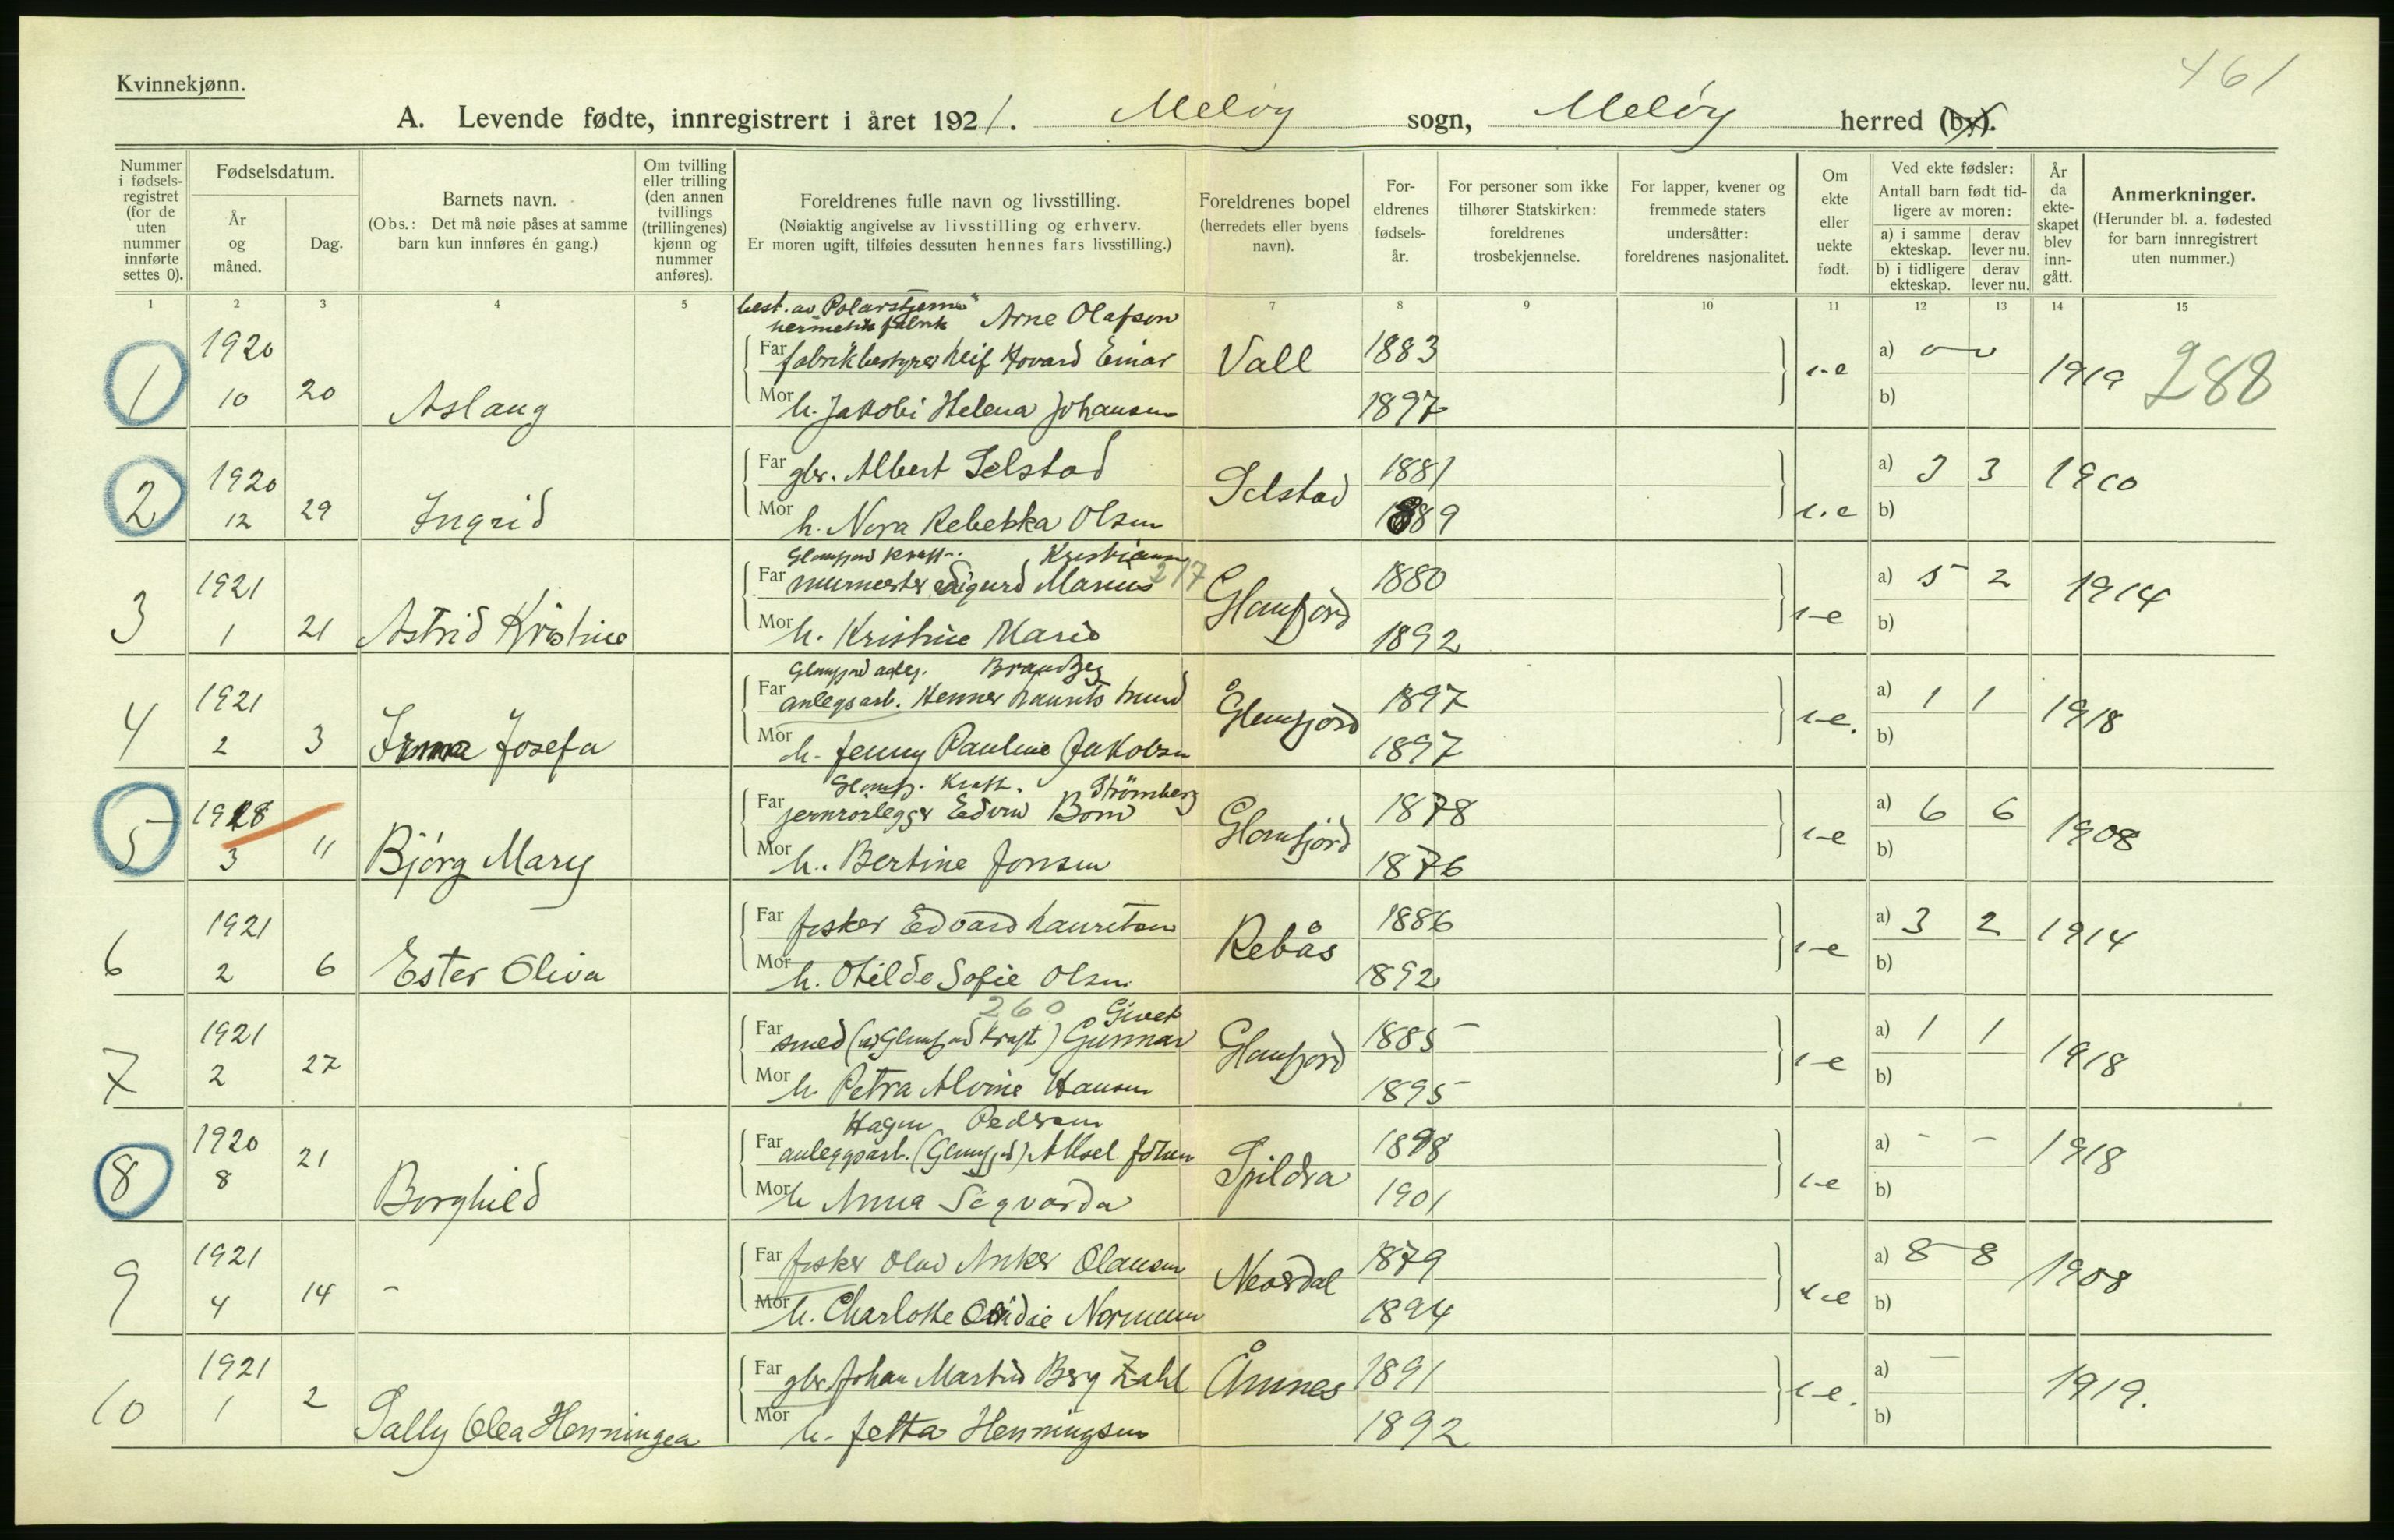 461
Kvinnekjønn.
A. Levende fødte, innregistrert i året 1921. Meløy sogn, Meløy herred (by).
Nummer i fødsels-registret (for de uten nummer innførte settes 0).
Fødselsdatum.
År og måned.
Dag.
Barnets navn.
(Obs.: Det må nøie påses at samme barn kun innføres én gang.)
Om tvilling eller trilling (den annen tvillings (trillingenes) kjønn og nummer anføres).
Foreldrenes fulle navn og livsstilling.
(Nøiaktig angivelse av livsstilling og erhverv.
Er moren ugift, tilføies dessuten hennes fars livsstilling.)
Foreldrenes bopel
(herredets eller byens navn).
For-eldrenes fødsels-år.
For personer som ikke tilhører Statskirken: foreldrenes trosbekjennelse.
For lapper, kvener og fremmede staters undersåtter: foreldrenes nasjonalitet.
Om ekte eller uekte født.
Ved ekte fødsler:
Antall barn født tid-ligere av moren:
a) i samme ekteskap. derav lever nu.
b) i tidligere ekteskap. derav lever nu.
År da ekte-skapet blev inn-gått.
Anmerkninger.
(Herunder bl. a. fødested for barn innregistrert uten nummer.)
1 2 3 4 5 7 8 9 10 11 12 13 14 15
best. av Polarstjerne"
hermetikfabrik Arne Olafson
1 1920 Far fabrikbestyrer Leif Hovard Einar Vall 1883 a)
10 20 Aslaug Mor h. Jakobi Helena Johansen 1897 b) 1919 288
2 1920 Far gbr. Albert Selstad Selstad 1881 a) 3 3 1910
12 29 Ingrid Mor h. Nora Rebekka Olsen 1889 b)
Glomfjord Kraft. Kristiansen
3 1921 Far murmester Sigurd Marius 217 Glomfjord 1880 a) 5 2 1914
1 21 Astrid Kristine Mor h. Kristine Marie 1892 b)
Glomfjord anleg. Brandtzeg
4 1921 Far anlegsarb. Henner Laurits Lund Glomfjord 1897 a) 1 1 1918
2 3 Irma Josefa Mor h. Jenny Pauline Jakobsen 1897 b)
Glomfj. Kraft. Strömberg
5 1918 Far jernrørlegger Edvin Bom Glomfjord 1878 a) 6 6 1908
3 11 Bjørg Mary Mor h. Bertine Jonsen 1876 b)
6 1921 Far fisker Edvard Lauritsen Rebås 1886 a) 3 2 1914
2 6 Ester Oliva Mor h. Otilde Sofie Olsen 1892 b)
260 Givet
7 1921 Far smed (ved Glomfjord Kraft) Gunnar Glomfjord 1885 a) 1 1 1918
2 27 Mor h. Petra Alvine Hansen 1895 b)
Hagen Pedersen
8 1920 Far anleggsarb. (Glomfjord) Aksel Johan Spildra 1898 a) - - 1918
8 21 Borghild Mor h Anna Sigvarda 1901 b)
9 1921 Far fisker Olav Anker Olausen Neverdal 1879 a) 8 8 1908
4 14 - Mor h. Charlotte Ovidie Normann 1894 b)
10 1921 Far gbr Johan Martin Berg Zahl Åmnes 1891 a) - 1919.
1 2 Sally Olea Henningea Mor h. Jetta Henningsen 1892 b)